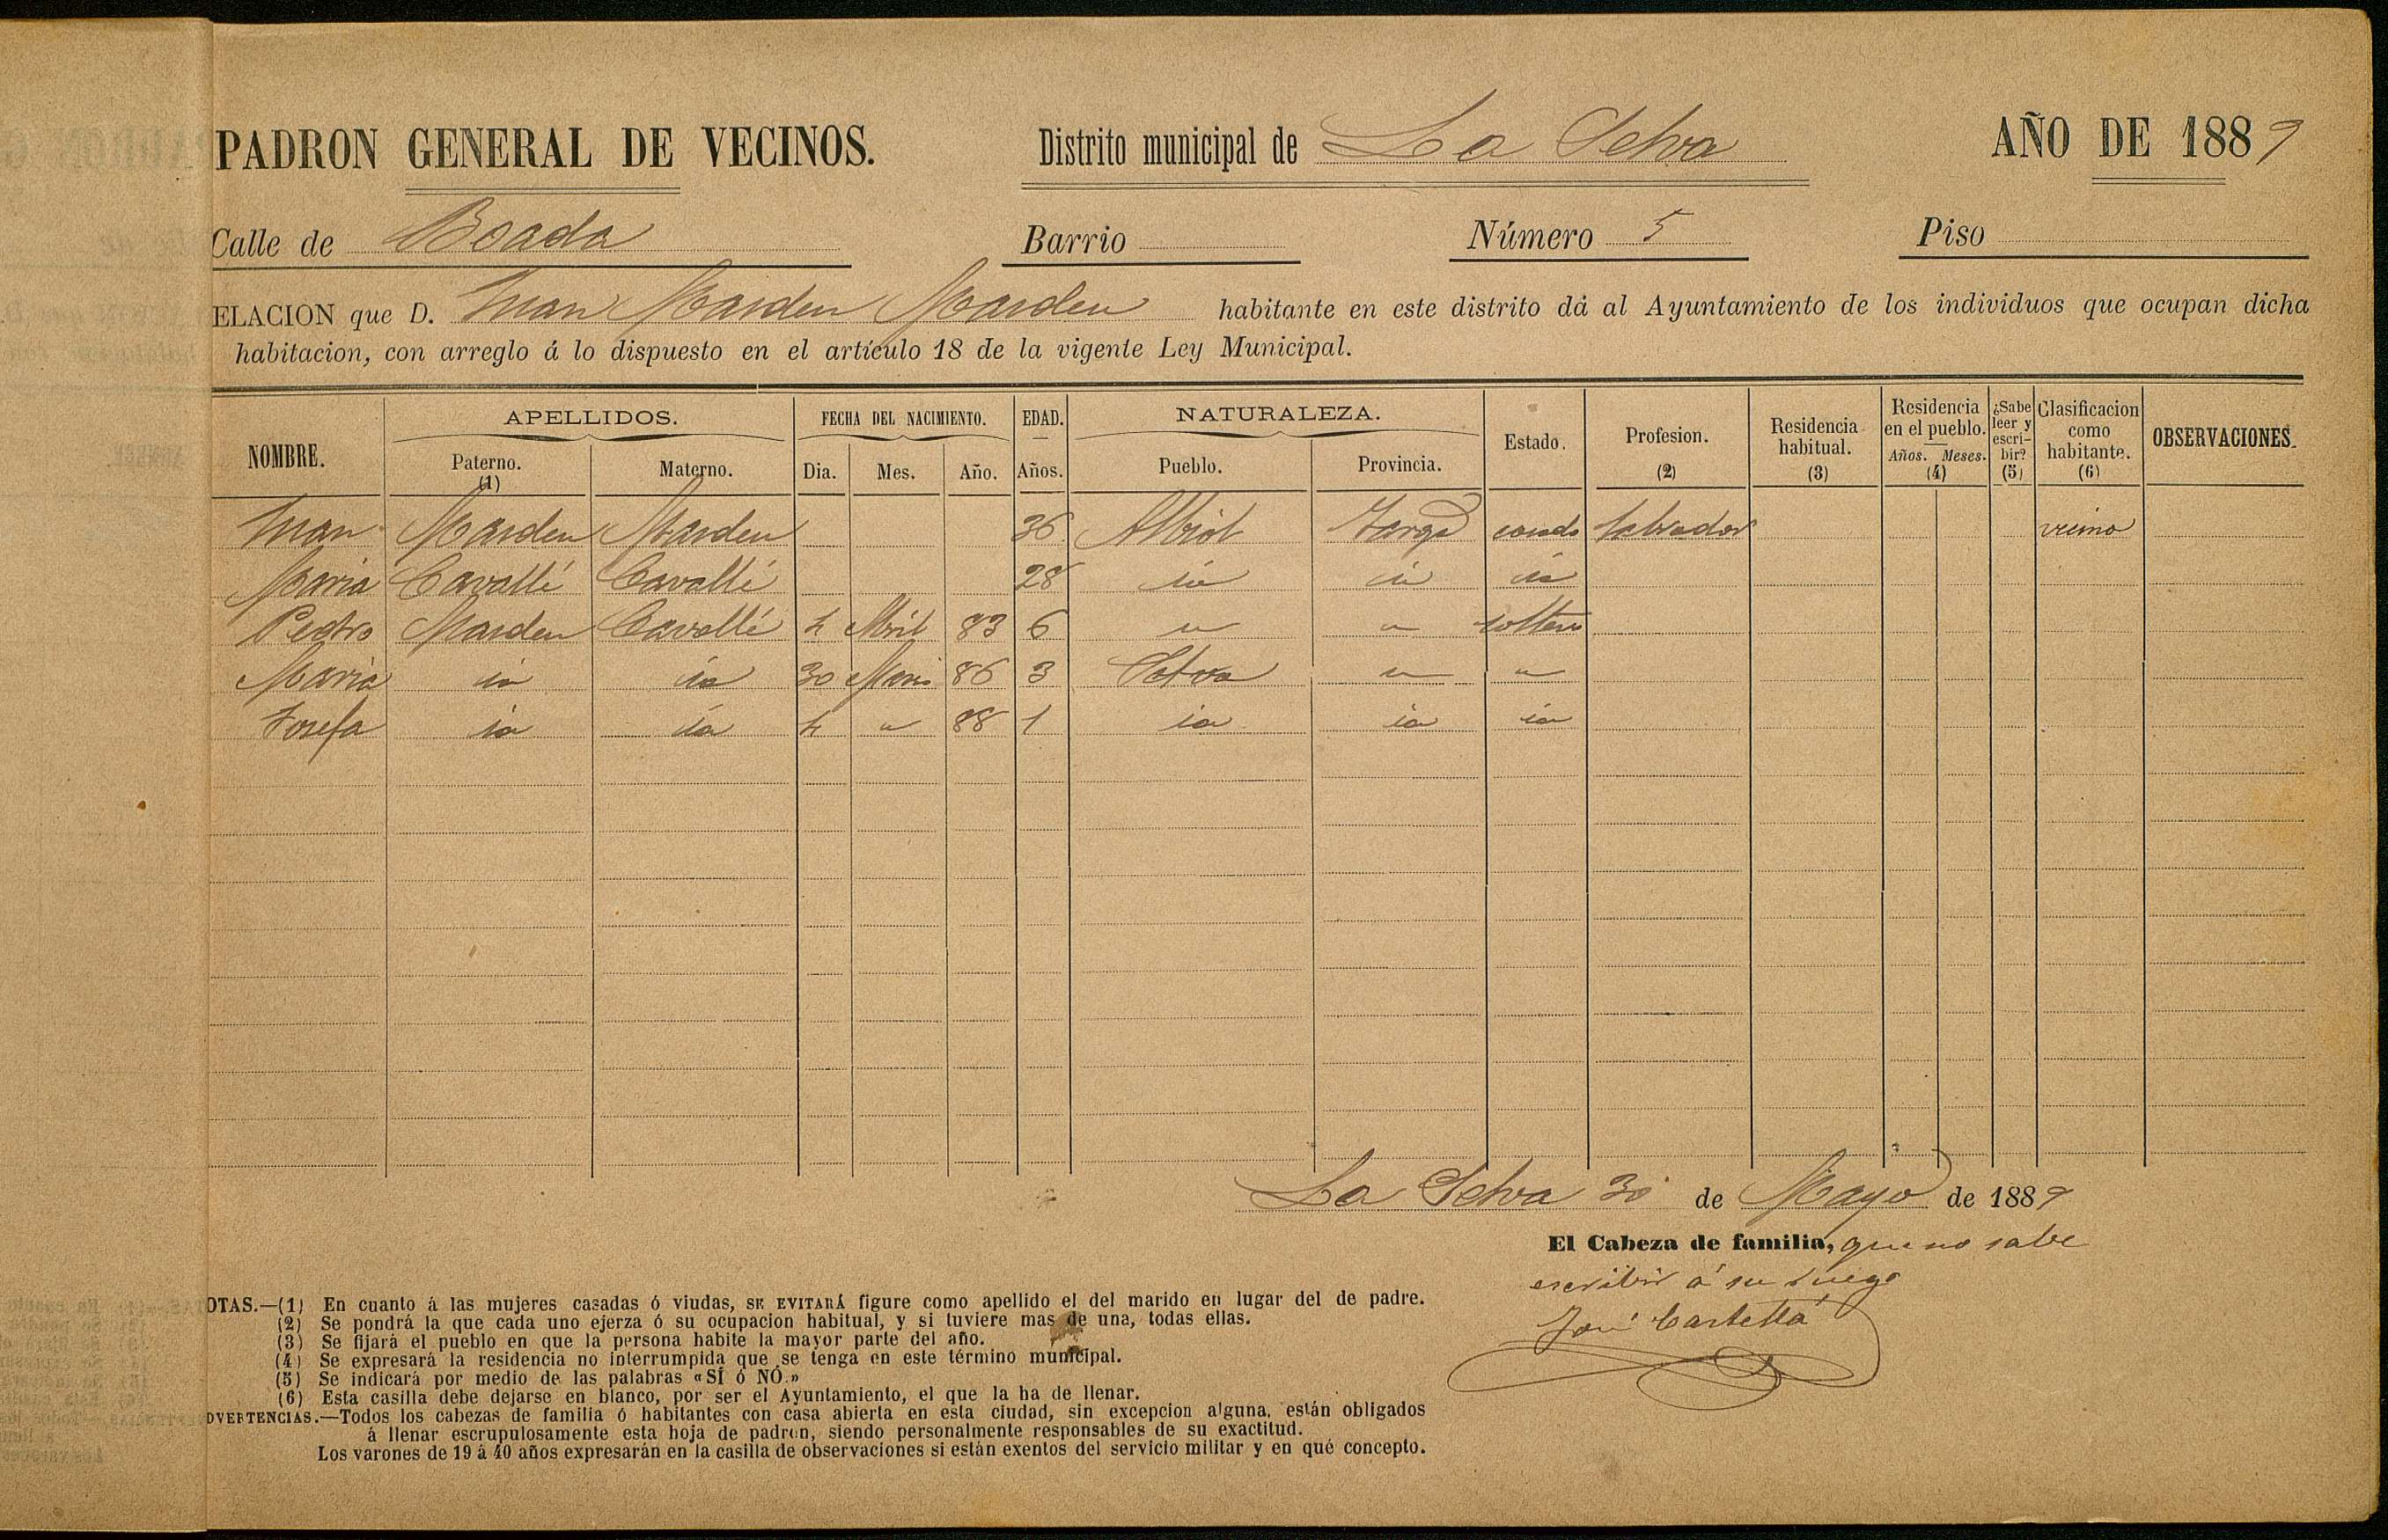 PADRON GENERAL DE VECINOS. Distrito municipal de La Selva AÑO DE 1889
Calle de Boada Barrio Número 5 Piso
ELACION que D. Juan Masden Masden habitante en este distrito dá al Ayuntamiento de los individuos que ocupan dicha
habitacion, con arreglo á lo dispuesto en el artículo 18 de la vigente Ley Municipal.
NOMBRE. APELLIDOS. Paterno. (1) Materno. FECHA DEL NACIMIENTO. Dia. Mes. Año. EDAD. Años. NATURALEZA. Pueblo. Provincia. Estado. Profesion. (2) Residencia habitual. (3) Residencia en el pueblo. Años. Meses. (4) ¿Sabe leer y escribir? (5) Clasificacion como habitante. (6) OBSERVACIONES.
Juan Masden Masden 36 Albiol Targª casado labrador vecino
Maria Cavallé Cavallé 28 id id id
Pedro Masden Cavallé 4 Abril 83 6 " " soltero
Maria id id 30 86 3 Selva " "
Josefa id id 4 " 88 1 id id id
La Selva 30 de Mayo de 1889
El Cabeza de familia, que no sabe
escribir á su ruego
José Castellá
OTAS.—(1) En cuanto á las mujeres casadas ó viudas, SE EVITARÁ figure como apellido el del marido en lugar del de padre.
(2) Se pondrá la que cada uno ejerza ó su ocupacion habitual, y si tuviere mas de una, todas ellas.
(3) Se fijará el pueblo en que la persona habite la mayor parte del año.
(4) Se expresará la residencia no interrumpida que se tenga en este término municipal.
(5) Se indicará por medio de las palabras «SÍ ó NÓ.»
(6) Esta casilla debe dejarse en blanco, por ser el Ayuntamiento, el que la ha de llenar.
DVERTENCIAS.—Todos los cabezas de familia ó habitantes con casa abierta en esta ciudad, sin excepcion alguna, están obligados
á llenar escrupulosamente esta hoja de padron, siendo personalmente responsables de su exactitud.
Los varones de 19 á 40 años expresarán en la casilla de observaciones si están exentos del servicio militar y en qué concepto.